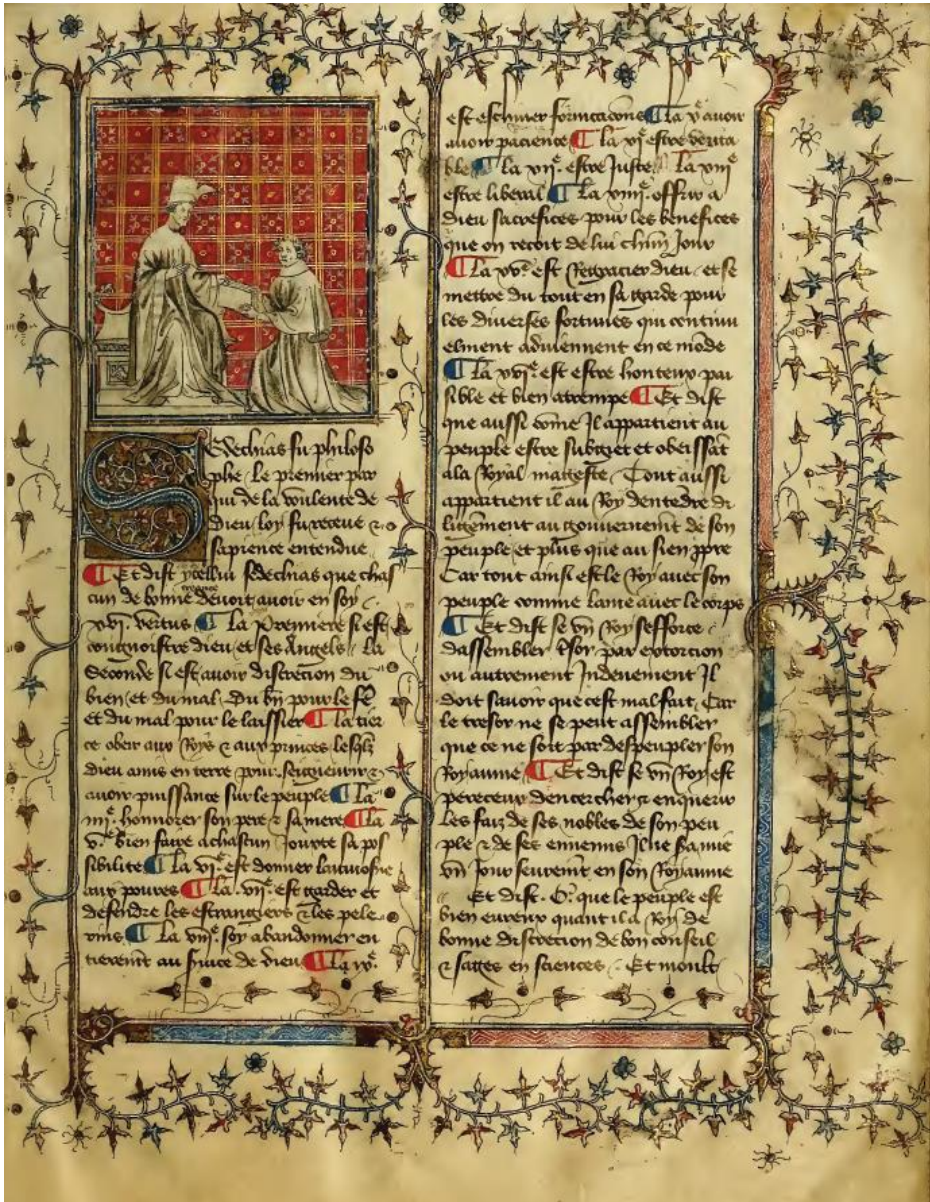 Sedechias fu philoso
phe . Le premier par
qui de la voulente de
dieu loy fu receue ⁊
sapience entendue
¶ Et dist ycellui sedechias que chas
cun de bonne devoit avoir en soy .
xvi. vertus ¶ La premiere si est
congnoistre dieu et ses Angels . La
Seconde si est avoir discrecion du
bien et du mal . Du bn pour le fe
et du mal pour le laissier ¶ la tier
ce obeir aux Roys ⁊ aux princes lesqlz
dieu a mis en terre pour seigneurir ⁊
avoir puissance sur le peuple ¶ La
iiije. honnorer son pere ⁊ sa mere ¶ la
ve. bien faire a chascun jouxte sa pos
sibilite ¶ La vie. est donner laumosne
aux poures ¶ La viie. est garder et
defendre les estrangiers ⁊ les pele
rins ¶ La viije. soy abandonner en
tierent au suice de dieu ¶ La ixe.
est eschiver fornicacions ¶ La xe avoir
avoir pacience ¶ la xie estre verita
ble ¶ La xiie. estre Juste . La xiije
estre liberal ¶ La xiiije. offrir a
dieu sacrefices pour les benefices
que on recoit de lui chun Jour
¶ La xve. est Regracier dieu . et se
mettre du tout en sa garde pour
les diverses fortunes qui continu
elment adviennent en ce mode
¶ La xvie. est estre honteux pai
sible et bien atrempe ¶ Et dist
que aussi come Il appartient au
peuple estre subget et obeissat
a la Royal mageste . Tout aussi
appartient il au Roy dentedre di
ligement au gouvernemt de son
peuple et plus que au sien ppre
Car tout ainsi est le Roy avec son
peuple comme lame avec le corps
¶ Et dist se vn Roy sefforce .
dassembler tsor par extorcion
ou autrement Indeuement Il
doit savoir que cest mal fait . Car
le tresor ne se peut assembler
que ce ne soit par despeupler son
Royaume ¶ Et dist se vn Roy est
pereceux dencerchier ⁊ enquerir
Les faiz de ses nobles de son peu
ple ⁊ de ses ennemis Il ne sa mie
vn Jour seurement en son Royaume
Et dist . O . que le peuple est
bien eureux quant il a Roy de
bonne discrecion de bon conseil
⁊ sages en sciences . Et moult